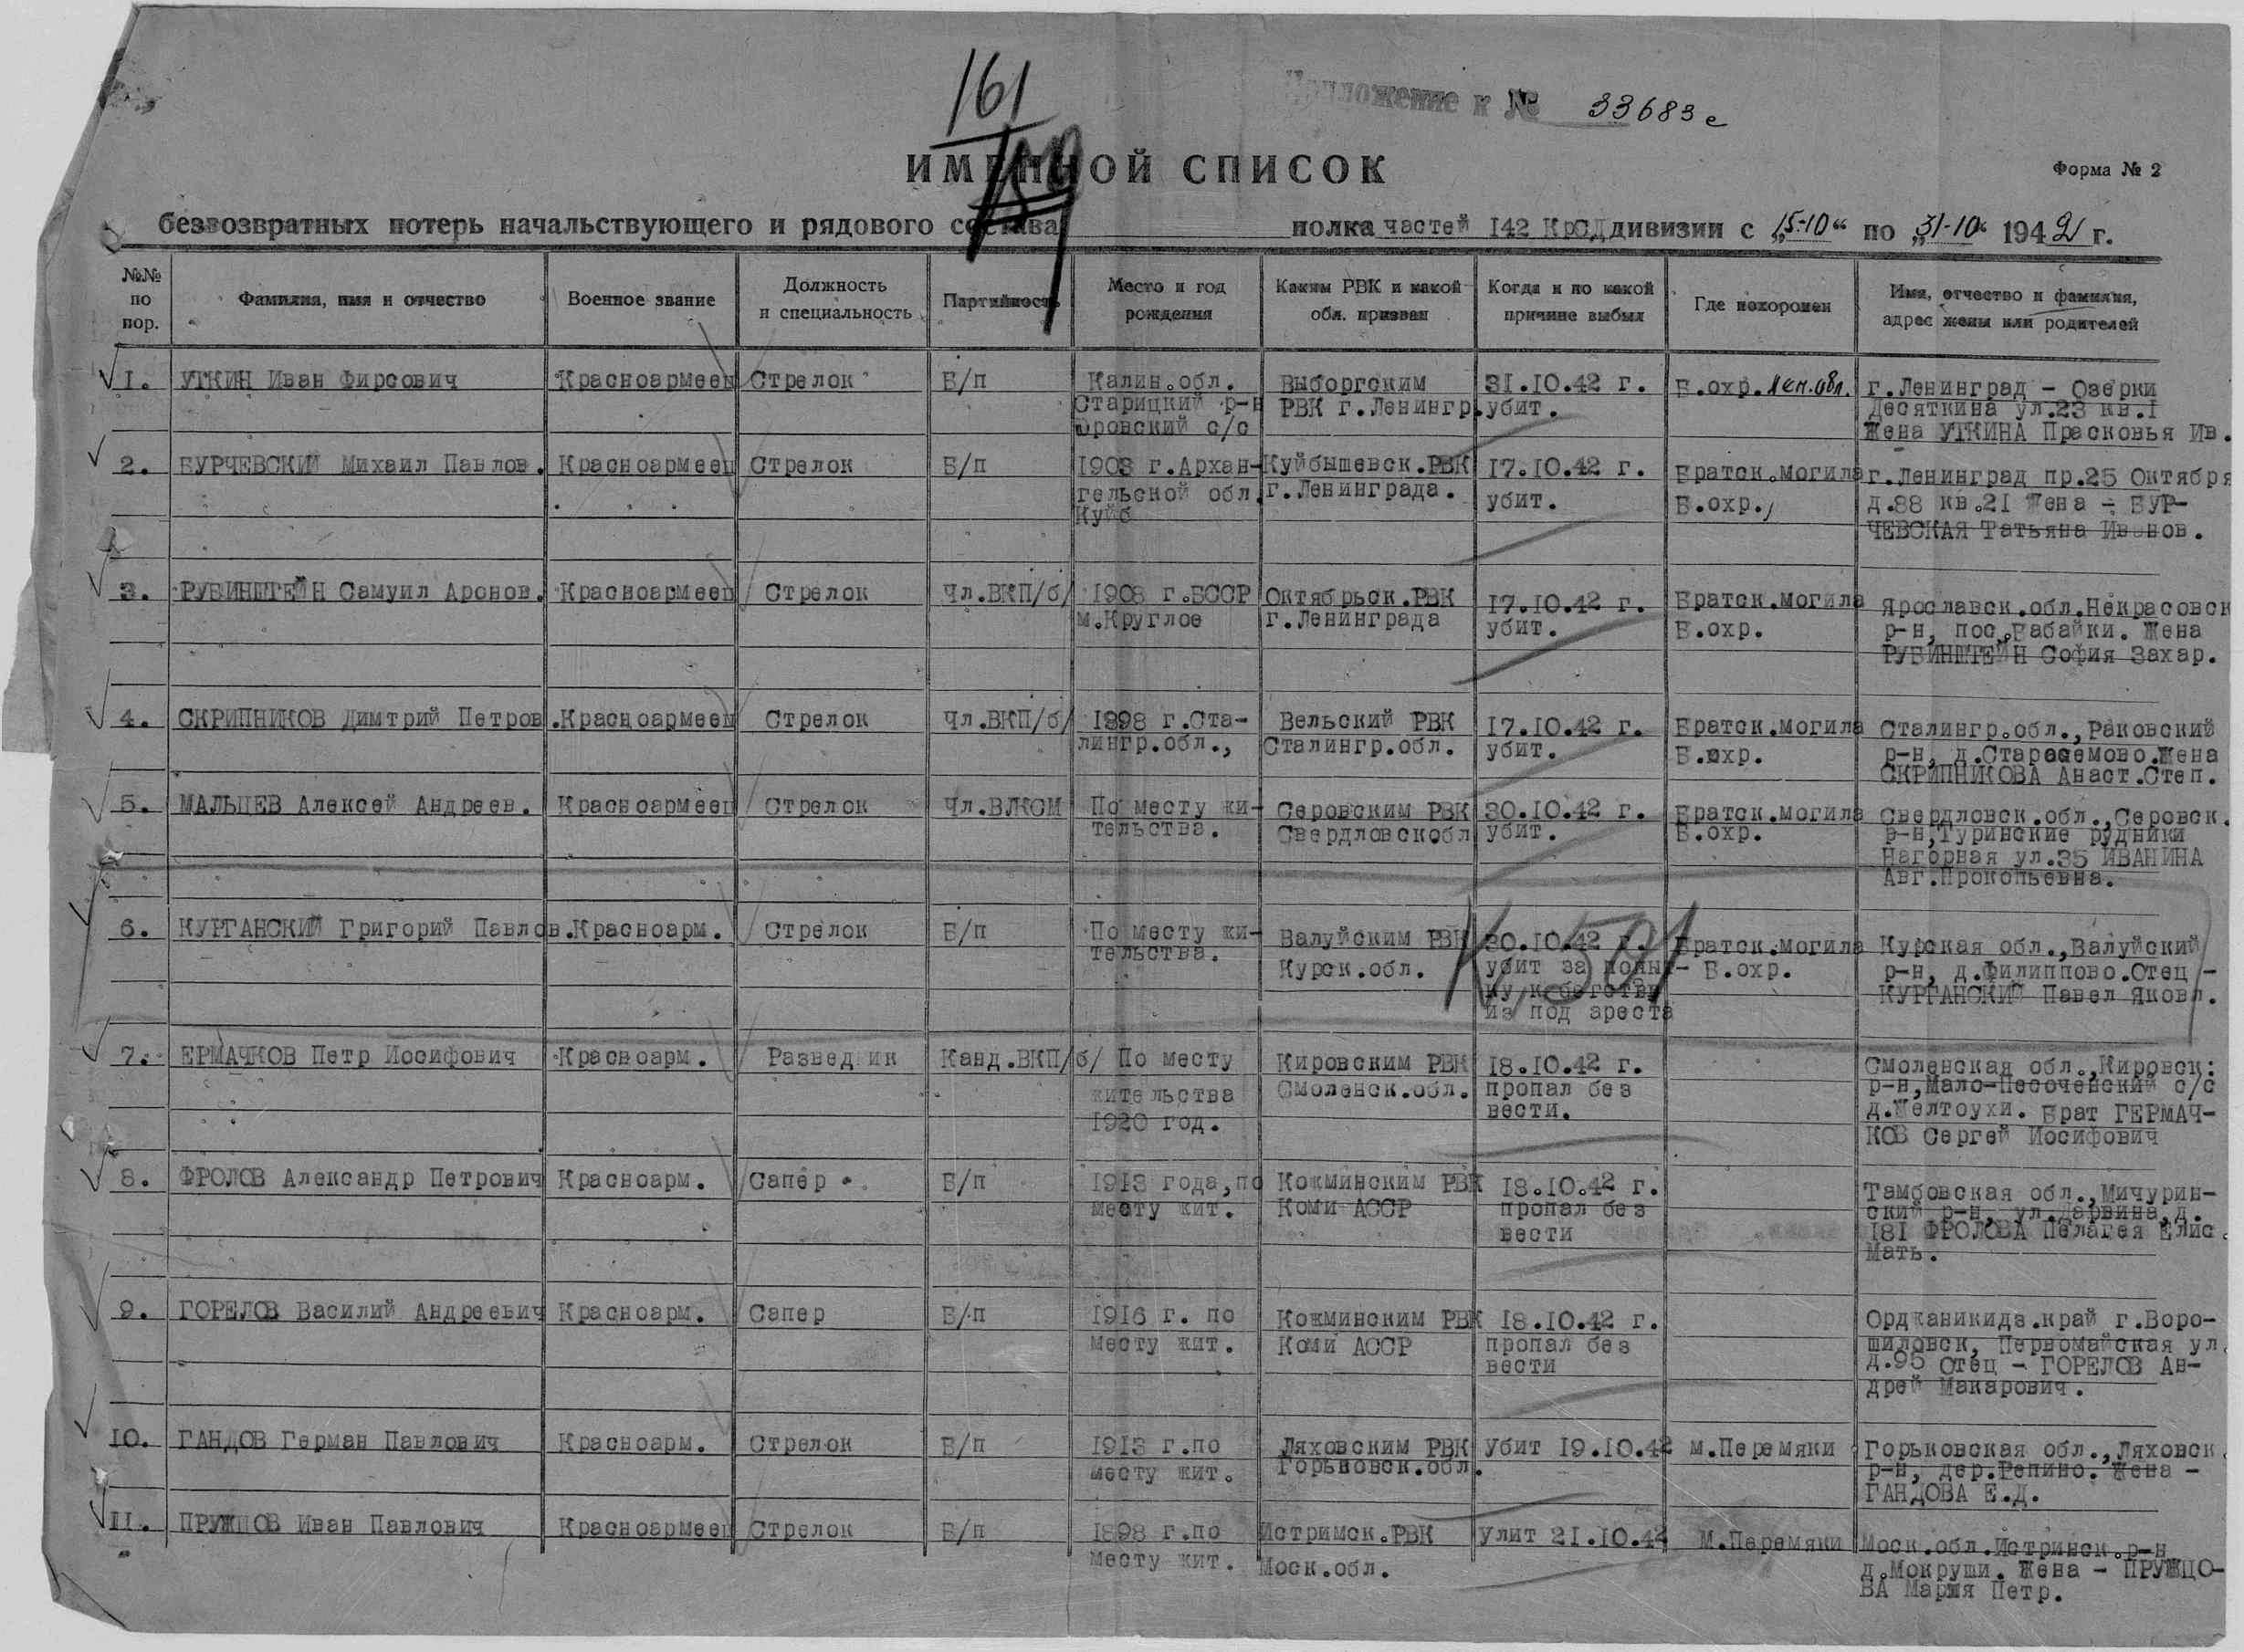 161
159
Приложение к № 33683с
ИМЕННОЙ СПИСОК
Форма № 2
безвозвратных потерь начальствующего и рядового состава полка частей 142 КрСД дивизии с „15-10“ по „31-10“ 1942 г.
№№ по пор. | Фамилия, имя и отчество | Военное звание | Должность и специальность | Партийность | Место и год рождения | Каким РВК и какой обл. призван | Когда и по какой причине выбыл | Где похоронен | Имя, отчество и фамилия, адрес жены или родителей
1. УТКИН Иван Фирсович Красноармеец Стрелок Б/п Калин.обл. Выборгским 31.10.42 г. Б.охр. Лен.обл. г.Ленинград - Озерки
Старицкий р-н РВК г.Ленингр. убит. Десяткина ул.23 кв.1
Юровский с/с Жена УТКИНА Прасковья Ив.
2. БУРЧЕВСКИЙ Михаил Павлов. Красноармеец Стрелок Б/п 1903 г.Архан- Куйбышевск.РВК 17.10.42 г. Братск.могила г.Ленинград пр.25 Октября
гельской обл. г.Ленинграда. убит. Б.охр., д.88 кв.21 Жена - БУР-
Куйб ЧЕВСКАЯ Татьяна Иванов.
3. РУБИНШТЕЙН Самуил Аронов. Красноармеец Стрелок Чл.ВКП/б/ 1908 г.БССР Октябрьск.РВК 17.10.42 г. Братск.могила Ярославск.обл.Некрасовск
м.Круглое г.Ленинграда убит. Б.охр. р-н, пос.Бабайки. Жена
РУБИНШТЕЙН София Захар.
4. СКРИПНИКОВ Димтрий Петров. Красноармеец Стрелок Чл.ВКП/б/ 1898 г.Ста- Вельский РВК 17.10.42 г. Братск.могила Сталингр.обл.,Раковский
лингр.обл., Сталингр.обл. убит. Б.охр. р-н, д.Старосемово.Жена
СКРИПНИКОВА Анаст.Степ.
5. МАЛЬЦЕВ Алексей Андреев. Красноармеец Стрелок Чл.ВЛКСМ По месту жи- Серовским РВК 30.10.42 г. Братск.могила Свердловск.обл.,Серовск.
тельства. Свердловскобл убит. Б.охр. р-н,Туринские рудники
Нагорная ул.35 ИВАНИНА
Авг.Прокопьевна.
6. КУРГАНСКИЙ Григорий Павлов. Красноарм. Стрелок Б/п По месту жи- Валуйским РВК 30.10.42 г. Братск.могила Курская обл.,Валуйский
тельства. Курск.обл. убит за попыт- Б.охр. р-н, д.Филиппово.Отец -
ку к бегству КУРГАНСКИЙ Павел Яковл.
из под ареста
7. ЕРМАЧКОВ Петр Иосифович Красноарм. Разведчик Канд.ВКП/б/ По месту Кировским РВК 18.10.42 г. Смоленская обл.,Кировск.
жительства Смоленск.обл. пропал без р-н,Мало-Песоченский с/с
1920 год. вести. д.Желтоухи. Брат ГЕРМАЧ-
КОВ Сергей Иосифович
8. ФРОЛОВ Александр Петрович Красноарм. Сапер Б/п 1913 года,по Кожминским РВК 18.10.42 г. Тамбовская обл.,Мичурин-
месту жит. Коми АССР пропал без ский р-н, ул.Дарвина,д.
вести 181 ФРОЛОВА Пелагея Елис.
Мать.
9. ГОРЕЛОВ Василий Андреевич Красноарм. Сапер Б/п 1916 г. по Кожминским РВК 18.10.42 г. Орджаникидз.край г.Воро-
месту жит. Коми АССР пропал без шиловск, Первомайская ул.
вести д.95 Отец - ГОРЕЛОВ Ан-
дрей Макарович.
10. ГАНДОВ Герман Павлович Красноарм. Стрелок Б/п 1913 г.по Ляховским РВК Убит 19.10.42 м.Перемяки Горьковская обл.,Ляховск.
месту жит. Горьковск.обл. р-н, дер.Репино. Жена -
ГАНДОВА Е.Д.
11. ПРУЖЦОВ Иван Павлович Красноармеец Стрелок Б/п 1898 г.по Истримск.РВК Улит 21.10.42 М.Перемяки Моск.обл.Истринск.р-н
месту жит. Моск.обл. д.Мокруши. Жена - ПРУЖЦО-
ВА Мария Петр.